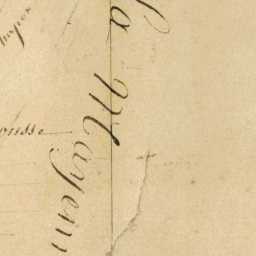 la Mayenn
ousse